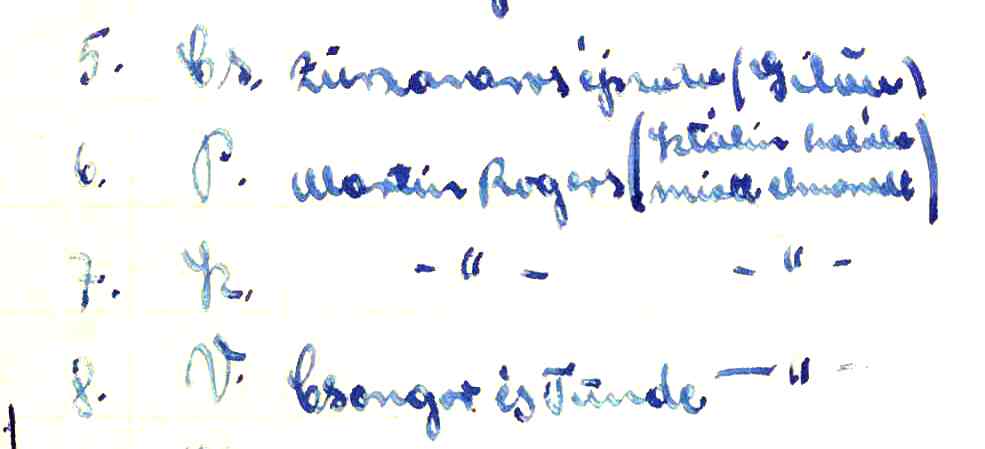 5. Cs. Zűrzavaros éjszaka
6. P. Martin Rogers (Sztálin halála
miatt elmaradt)
7. Sz. - " - - " -
8. V. Csongor és Tünde — " -